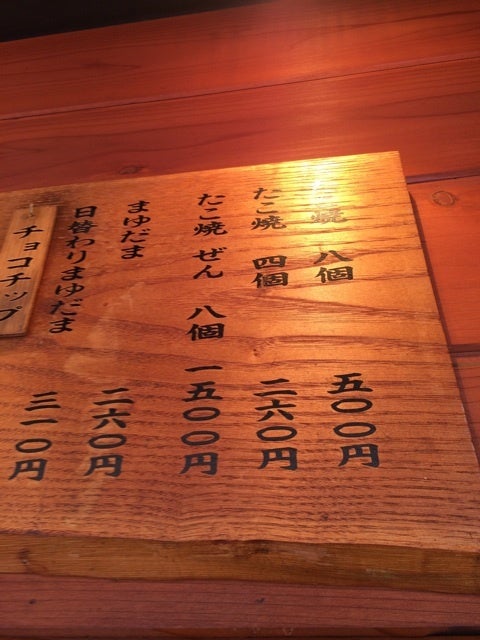 たこ焼 八個 五〇〇円
たこ焼 四個 二六〇円
たこ焼 ぜん 八個 一五〇〇円
まゆだま 二六〇円
日替わりまゆだま 三一〇円
チョコチップ